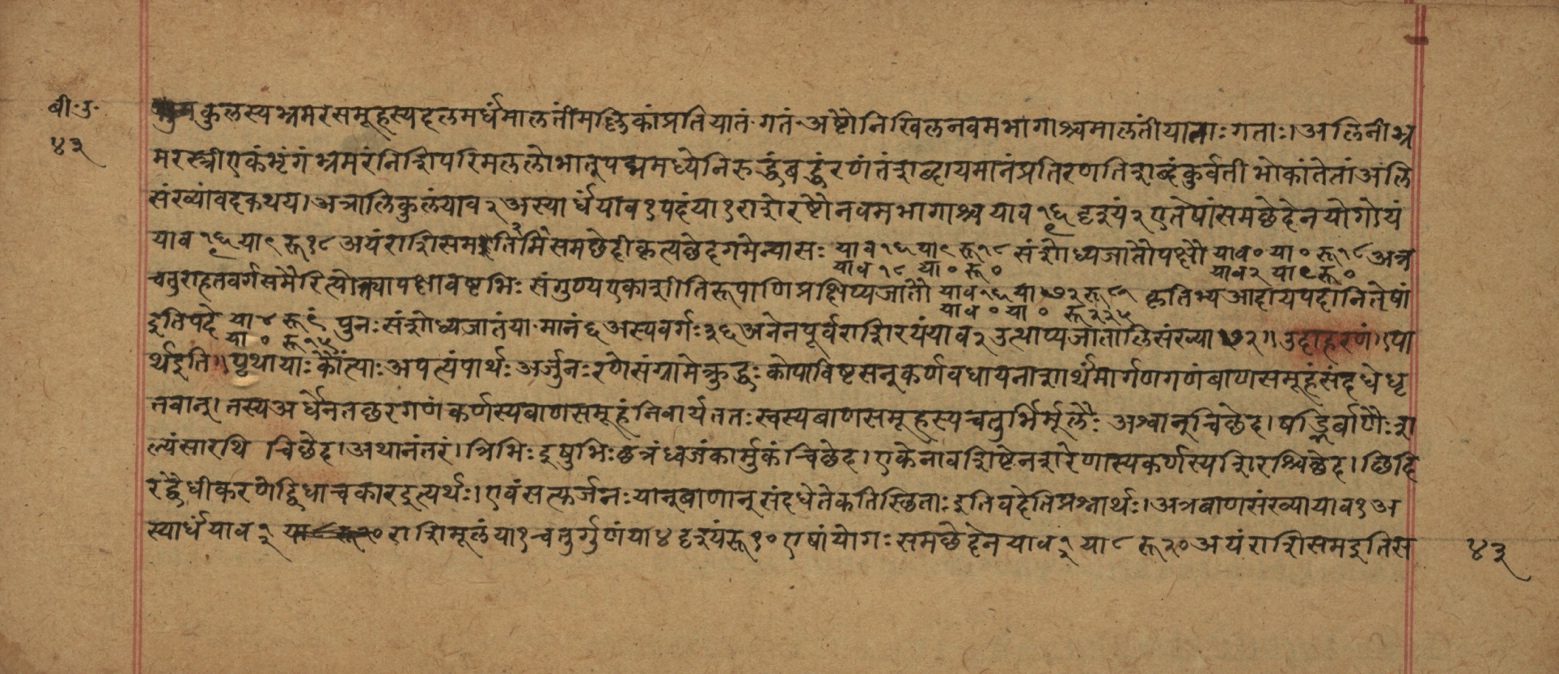 बी॰उ॰
४३
कुलस्यभ्रमरसमूहस्यदलमर्धंमालतींमल्लिकांप्रतियातं॰गतं॰अष्टौनिखिलनवमभागाश्चमालतींयाताःगताः।अलिनींभ्र
मरस्त्रींएकंभृंगंभ्रमरंनिशिपरिमललोभात्पद्ममध्येनिरुद्धंबद्धंरणंतंशब्दायमानंप्रतिरणतिशब्दंकुर्वतीभोकांतेतांअलि
संख्यांवदकथय।अत्रालिकुलंयाव२अस्यार्धंयाव१पदंया१राशेरष्टौनवमभागाश्चयाव १६ दृश्यं२एतेषांसमछेदेनयोगोयं
याव १६ या९ रू१८ अयंराशिसमइतिसमछेदीकृत्यछेदगमेन्यासः याव१६या९ रू१८ संशोध्यजातौपक्षौ याव॰ या॰ रू१८ अत्र
याव १८ या॰ रू॰ याव२ या९ रू॰
चतुराहतवर्गसमैरित्योक्त्यापक्षावष्टभिः संगुण्यएकाशीतिरूपाणिप्रक्षिप्यजातौ याव१६या ७२रू८१ कृतिभ्यआदायपदानितेषां
याव॰ या॰ रू२२५
इतिपदे या४ रू९ पुनःसंशोध्यजातंया॰मानं६अस्यवर्गः३६अनेनपूर्वराशिरयंयाव२उत्थाप्यजातालिसंख्या ७२॥उदाहरणं।पा
या॰ रू१५
र्थइति।पृथायाःकौंत्याःअपत्यंपार्थःअर्जुनःरणेसंग्रामेक्रुद्धःकोपाविष्टसन्कर्णवधायनाशार्थंमार्गणगणंबाणसमूहंसंदधेधृ
तवान्।तस्यअर्धेनतछरगणंकर्णस्यबाणसमूहंनिवार्यततःस्वस्यबाणसमूहस्यचतुर्भिर्मूलैःअश्वान्चिछेद।षड्भिर्बाणैःश
ल्यंसारथि चिछेद।अथानंतरं।त्रिभिःइषुभिःछत्रंध्वजंकार्मुकंचिछेद।एकेनावशिष्टेनशरेणास्यकर्णस्यशिरश्चिछेद।छिदि
रद्वैधीकरणेद्विधाचकारइत्यर्थः।एवंसत्यर्जुनःयान्बाणान्संदधेतेकतिस्छिताःइतिवदेतिप्रश्नार्थः।अत्रबाणसंख्यायाव१अ
स्यार्धंयाव१२ राशिमूलंया१चतुर्गुणंया४दृश्यंरू१०एषांयोगःसमछेदेनयाव१ या८ रू२०अयंराशिसमइतिस
४३